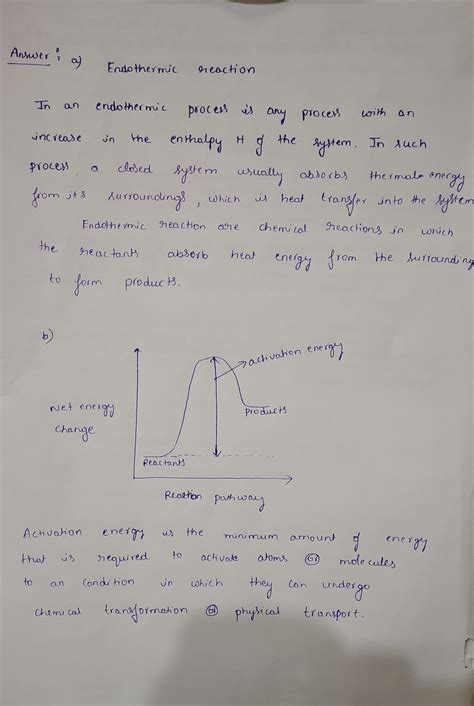 Answer : a) Endothermic reaction
In an endothermic process is any process with an
increase in the enthalpy H of the system. In such
process, a closed system usually absorbs thermal energy
from its surroundings, which is heat transfer into the system
Endothermic reaction are chemical reactions in which
the reactants absorb heat energy from the surrounding
to form products.
b)
activation energy
Net energy
change
Products
Reactants
Reaction pathway
Activation energy is the minimum amount of energy
that is required to activate atoms or molecules
to an condition in which they can undergo
chemical transformation or physical transport.